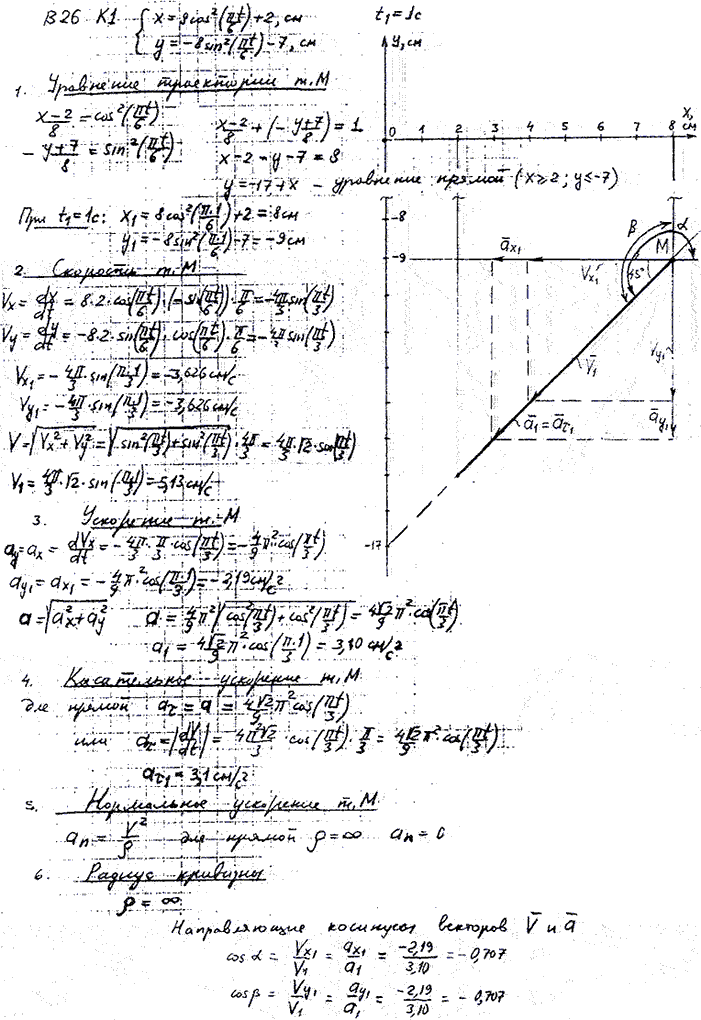 В26 К1
x = 8cos²(πt/6) + 2, см
y = -8sin²(πt/6) - 7, см
t₁ = 1c
1. Уравнение траектории т. М
(x-2)/8 = cos²(πt/6)
-(y+7)/8 = sin²(πt/6)
(x-2)/8 + (-(y+7)/8) = 1
x - 2 - y - 7 = 8
y = -17 + x - уравнение прямой (x ≥ 2; y ≤ -7)
При t₁ = 1c: x₁ = 8cos²(π·1/6) + 2 = 8см
y₁ = -8sin²(π·1/6) - 7 = -9см
2. Скорость т. М
Vx = dx/dt = 8·2·cos(πt/6)·(-sin(πt/6))·π/6 = -4π/3 sin(πt/3)
Vy = dy/dt = -8·2·sin(πt/6)·cos(πt/6)·π/6 = -4π/3 sin(πt/3)
Vx₁ = -4π/3·sin(π·1/3) = -3,626см/с
Vy₁ = -4π/3·sin(π·1/3) = -3,626см/с
V = √(Vx² + Vy²) = √(sin²(πt/3) + sin²(πt/3))·4π/3 = 4π/3·√2·sin(πt/3)
V₁ = 4π/3·√2·sin(π·1/3) = 5,13см/с
3. Ускорение т. М
ay = ax = dVx/dt = -4π/3·π/3·cos(πt/3) = -4/9 π²·cos(πt/3)
ay₁ = ax₁ = -4/9 π²cos(π·1/3) = -2,19см/с²
a = √(ax² + ay²) a = 4/9 π²√(cos²(πt/3) + cos²(πt/3)) = 4√2/9 π²cos(πt/3)
a₁ = 4√2/9 π²·cos(π·1/3) = 3,10 см/с²
4. Касательное ускорение т. М
для прямой aτ = a = 4√2/9 π²cos(πt/3)
или aτ = |dV/dt| = 4π√2/3 cos(πt/3)·π/3 = 4√2/9 π²·cos(πt/3)
aτ₁ = 3,1см/с²
5. Нормальное ускорение т. М
an = V²/ρ для прямой ρ = ∞ an = 0
6. Радиус кривизны
ρ = ∞
Направляющие косинусы векторов V̄ и ā
cos α = Vx₁/V₁ = ax₁/a₁ = -2,19/3,10 = -0,707
cos β = Vy₁/V₁ = ay₁/a₁ = -2,19/3,10 = -0,707
y, см
x, см
0 1 2 3 4 5 6 7 8
-8
-9
-17
β
α
М
45°
āx₁
Vx₁
Vy₁
V̄₁
āy₁
ā₁ = āτ₁